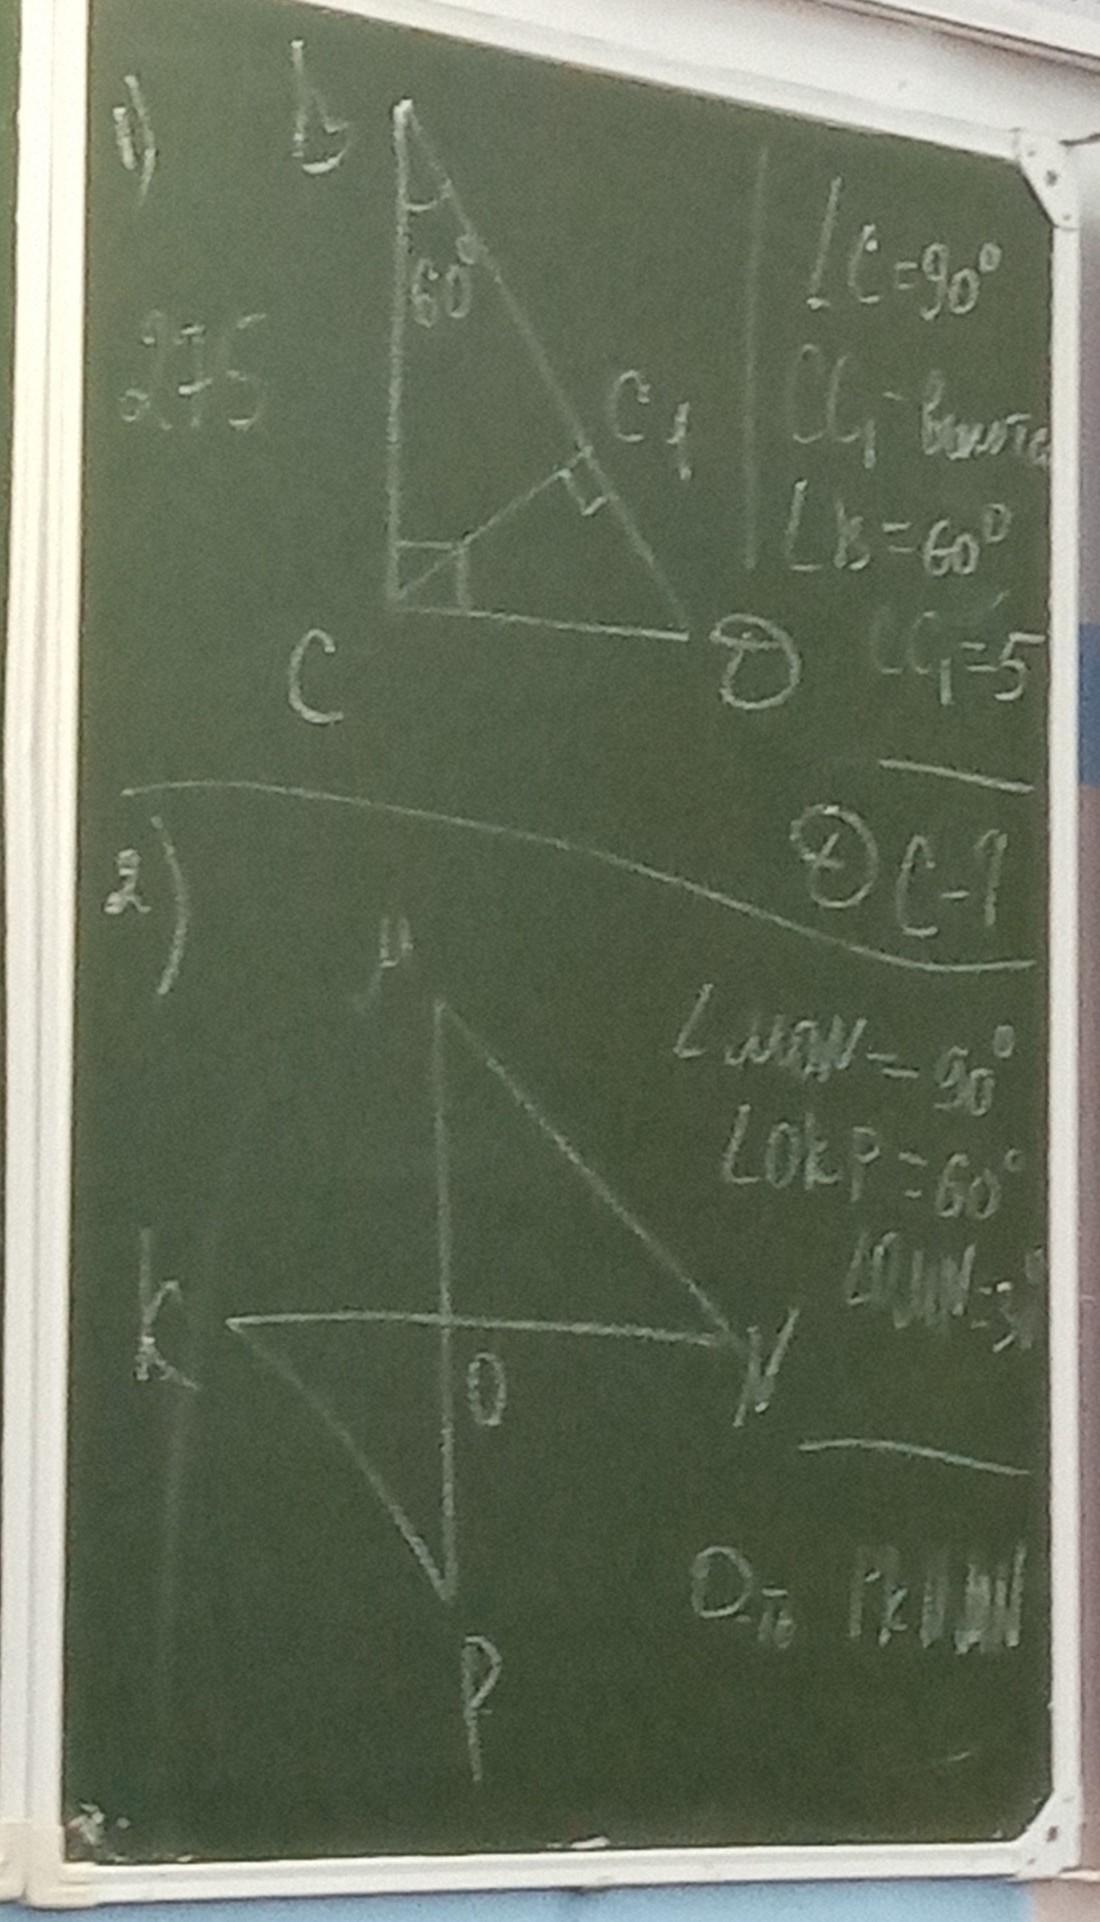 1)
B
60°
275
C₁
C
D
∠C=90°
CC₁-высота
∠B=60°
CC₁=5
DC-?
2)
M
K
O
N
P
∠MON=90°
∠OKP=60°
∠OMN=3
D-ть PK||MN